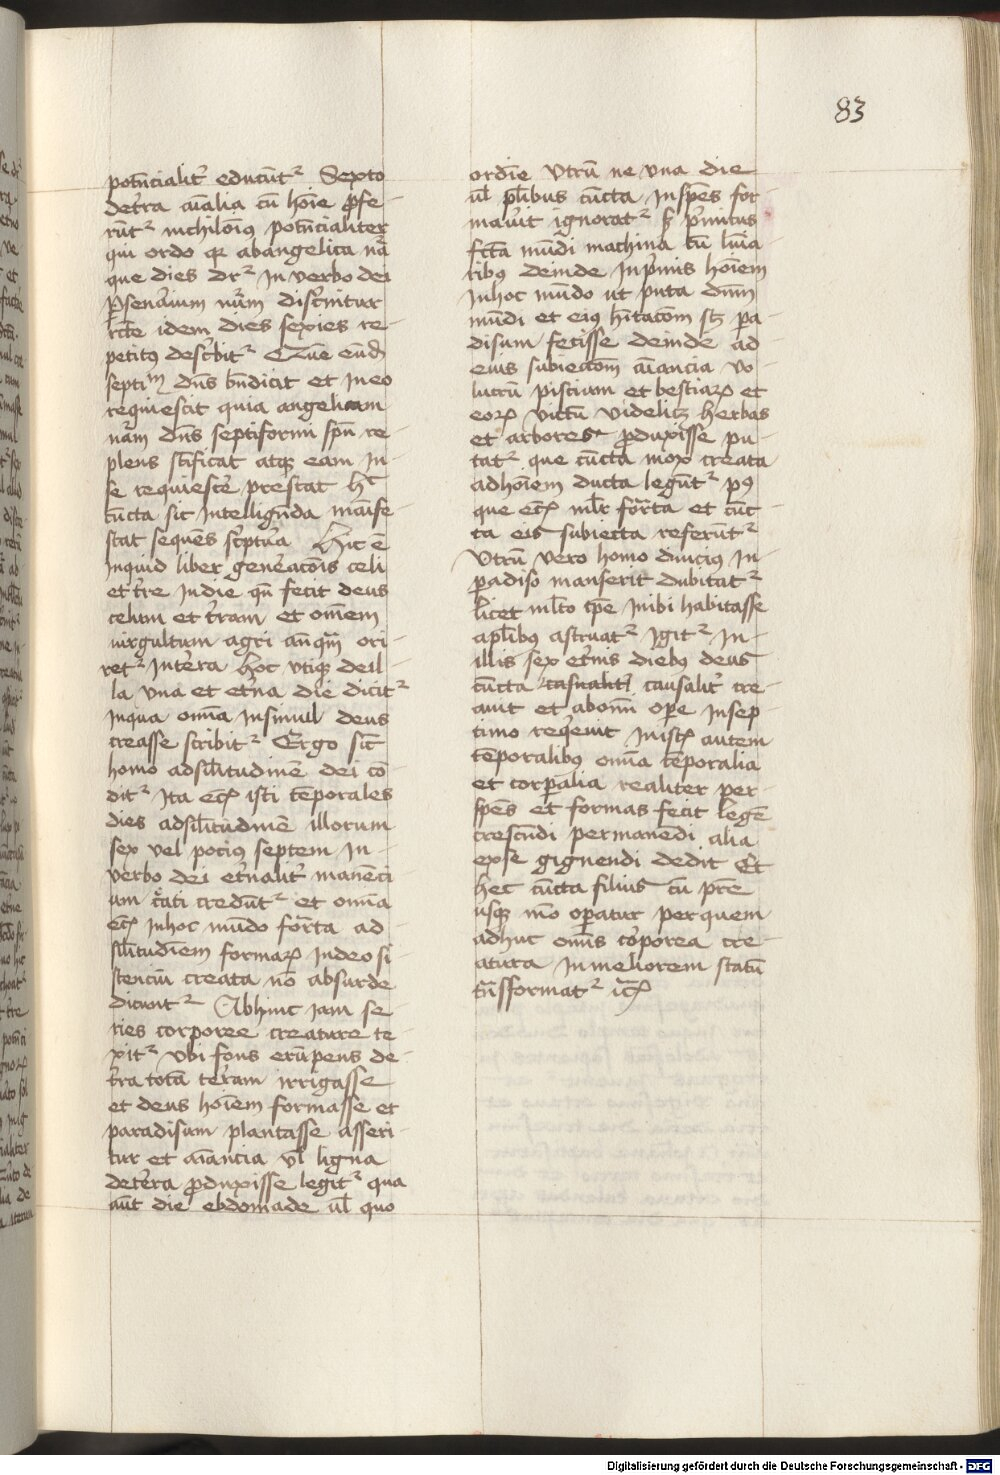 83
potn̄cialit̉ educūt² Sexto
det̉ra aīalia cū hoīe ꝓfe-
rūt² nichilōiꝯ potn̄cialiter
qui ordo qꝫ ab angelica nā
que dies dr̄² in verbo dei
ꝑ senariūm nūm discernitur
rcē idem dies sexies re-
petitꝯ descͥbit² Que eūdē
septiᵐ dn̄s bn̄dicit et in eo
requiescit quia angelicam
nām dn̄s septiformi spū re-
plens sc̄ificat atqꝫ eam in
se requiescẻ prestat hͨ
cūcta sic intelligēda māife-
stat sequēs sc̉ptūa Hic ē
inquid liber genẻacōis celi
et t̉re in die qn̄ fecit deus
celum et t̉ram et om̄em
uirgultum agri an̄qm̄ ori-
ret² in t̉ra hoc vtiqꝫ de il-
la vna et et̉na die dicit²
in qua om̄ia in simul deus
creasse scribit² Ergo sic̄
homo ad silitudinē dei cō-
dit² ita ec̄ꝫ isti tēporales
dies ad silitudinē illorum
sex vel pociꝯ septem in
verbo dei et̉nalit̉ manēci
um c̉ati credūt² et om̄ia
ec̄ꝫ in hoc mūdo for̄ta ad
silitudīem formaꝝ in deo si
stenciū creata nō absurde
dicunt² Abhinc iam se
ries corporee creature te-
xit² vbi fons erūpens de
t̉ra totā terram irrigasse
et deus hoīem formasse et
paradisum plantasse asseri-
tur et aīancia vl̄ ligna
de t̉ra ꝓduxisse legit² qua
aūt die ebdomade ul̄ quo
ordīe vtrū ne vna die
ul̄ pl̄ibus cūcta in spēs for
mauit ignorat² sꝫ p̉mitus
fc̄ta mūdi machina cū lūia
ribꝯ deinde in p̉mis hoīem
in hoc mūdo ut puta dn̄m
mūdi et eiꝯ hītac̄om sꝫ pa-
disum fecisse deinde ad
eius subiectōm aīancia vo
lucrū piscium et bestiaꝝ et
eoꝝ victū videlicꝫ herbas
et arbores ꝓduxisse pu-
tat² que cūcta mox creata
ad hoīem ducta legūt² pꝯ
que ec̄ꝫ ml̄r for̄ta et cūc
ta eis subiecta referūt²
vtrū vero homo diuciꝯ in
padiso manserit dubitat²
licet ml̄to tpe inibi habitasse
a pl̄ibꝯ astruat² Igit² in
illis sex et̉nis diebꝯ deus
cūcta casualit̉ causalit̉ cre-
auit et ab om̄i ope in sep
timo reqͥeuit in istꝫ autem
tēporalibꝯ om̄ia tēporalia
et corpalia realiter per
spēs et formas fecit legē
crescēdi permanēdi alia
ex se gignendi dedit Et
hec cūcta filius cū prē
usqꝫ mō opatur per quem
adhuc om̄is corporea cre-
atura in meliorem statū
trāsformat² ic̄ꝫ
Digitalisierung gefördert durch die Deutsche Forschungsgemeinschaft - DFG